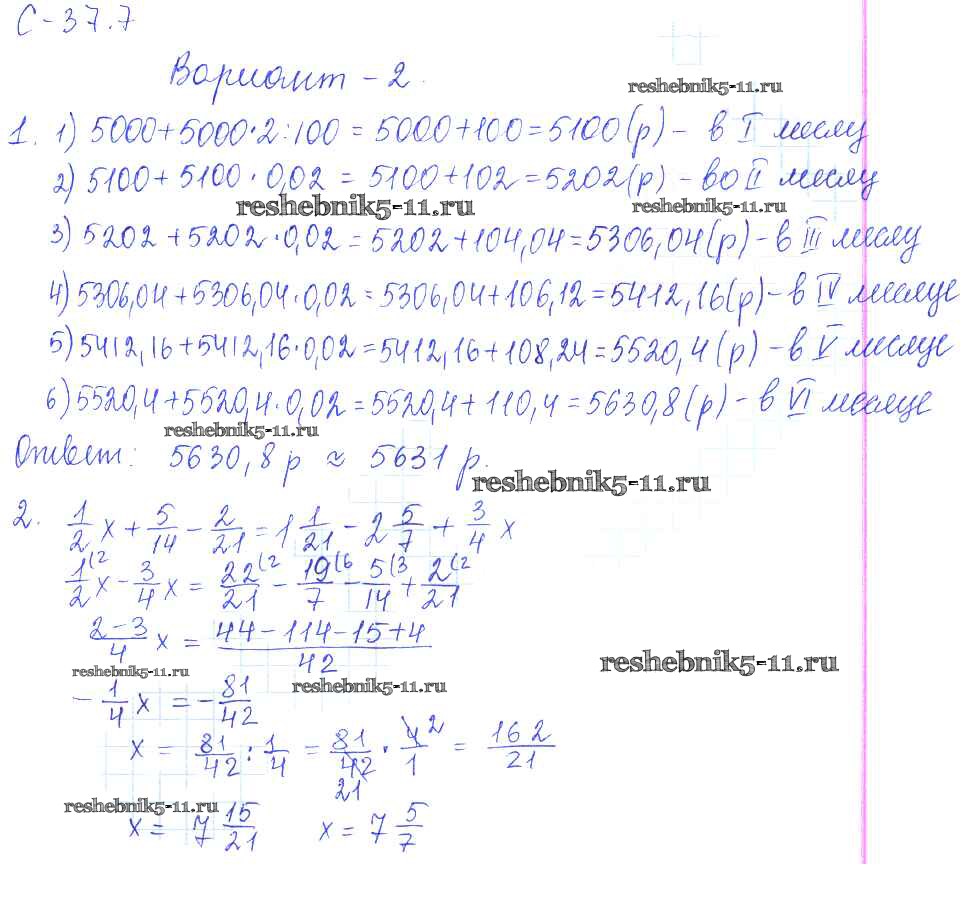 С-37.7
Вариант - 2.
reshebnik5-11.ru
1. 1) 5000+5000·2:100 = 5000+100=5100(р) - в I месяц
2) 5100+5100·0,02 = 5100+102=5202(р) - во II месяц
reshebnik5-11.ru reshebnik5-11.ru
3) 5202+5202·0,02=5202+104,04=5306,04(р)-в III месяц
4) 5306,04+5306,04·0,02=5306,04+106,12=5412,16(р)-в IV месяце
5) 5412,16+5412,16·0,02=5412,16+108,24=5520,4(р)-в V месяце
6) 5520,4+5520,4·0,02=5520,4+110,4=5630,8(р)-в VI месяце
reshebnik5-11.ru
Ответ: 5630,8 р ≈ 5631 р.
reshebnik5-11.ru
2. 1/2 x + 5/14 - 2/21 = 1 1/21 - 2 5/7 + 3/4 x
1(2/2 x - 3/4 x = 22(2/21 - 19(6/7 - 5(3/14 + 2(2/21
2-3/4 x = 44-114-15+4/42
reshebnik5-11.ru reshebnik5-11.ru reshebnik5-11.ru
- 1/4 x = - 81/42
x = 81/42 : 1/4 = 81/42 21 · 4 2/1 = 162/21
reshebnik5-11.ru
x = 7 15/21 x = 7 5/7